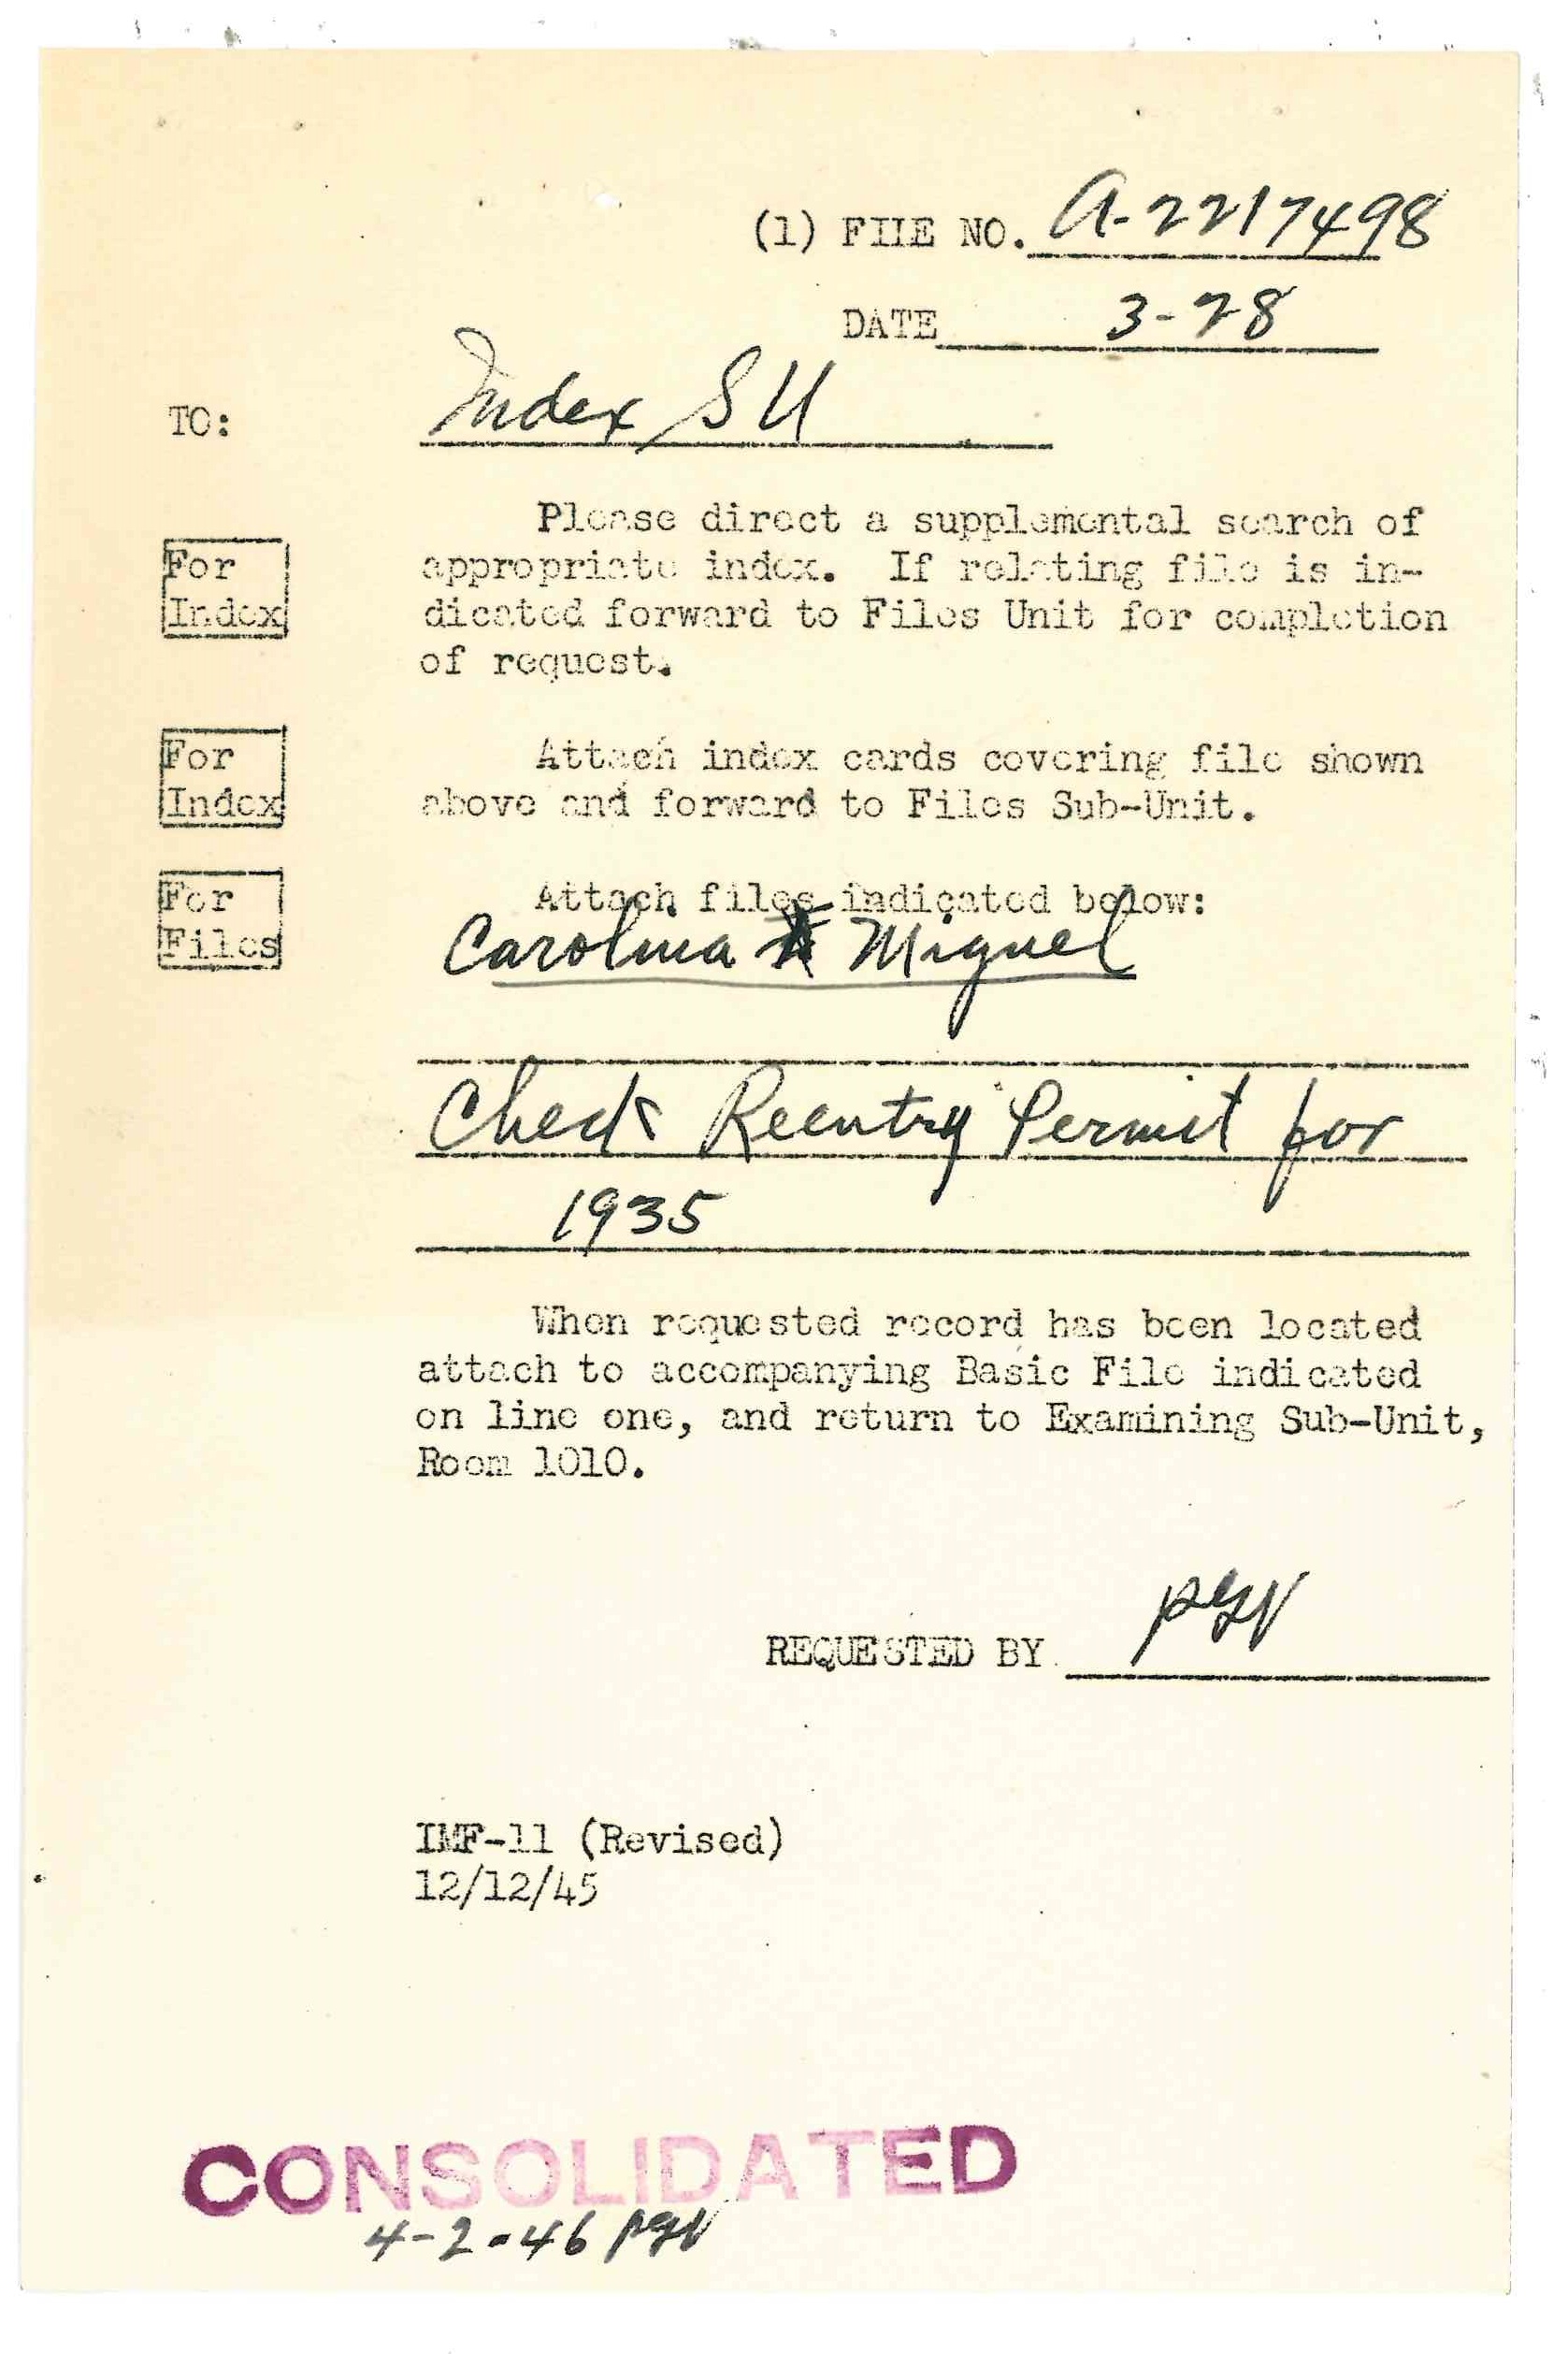 (1) FILE NO. A-2217498
DATE 3-28
TO: Index SU
For Index
Please direct a supplemental search of
appropriate index. If relating file is in-
dicated forward to Files Unit for completion
of request.
For Index
Attach index cards covering file shown
above and forward to Files Sub-Unit.
For Files
Attach files indicated below:
Carolina Miguel
Check Reentry Permit for
1935
When requested record has been located
attach to accompanying Basic File indicated
on line one, and return to Examining Sub-Unit,
Room 1010.
REQUESTED BY
IMF-11 (Revised)
12/12/45
CONSOLIDATED
4-2-46